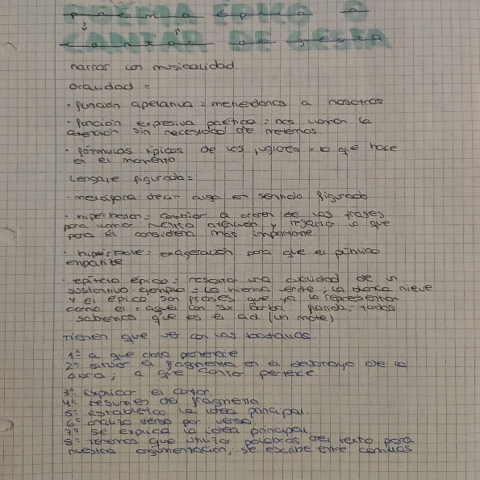 Poema épico
Cantar de gesta
narrar con musicalidad.
Oralidad =
· función apelativa = metiendonos a nosotros
· función expresiva poética = nos llaman la
atención sin necesidad de meternos.
· fórmulas típicas de los juglares = lo que hace
en el momento
Lenguaje figurado =
· metáfora decir algo en sentido figurado
· hiperbaton = cambiar el orden de las frases
para llamar nuestra atención y resaltar lo que
para él considera más importante
· hipérbole = exageración para que el público
empatize
· epíteto épico = resaltar una cualidad de un
sustantivo ejemplo = la hierba verde, la blanca nieve
y el épico son frases que ya lo representan
como el = aquel con su barba florida = todos
sabemos que es el Cid (un mote)
Tienen que ver con las batallas
1º a que obra pertenece
2º situar el fragmento en el desarrollo de la
obra, a que cantar pertenece
3º explicar el cantar
4º resumen del fragmento
5º establezco la idea principal
6º analizo verso por verso
7º se explica la idea principal
8º tenemos que utilizar palabras del texto para
nuestra argumentación, se escribe entre comillas